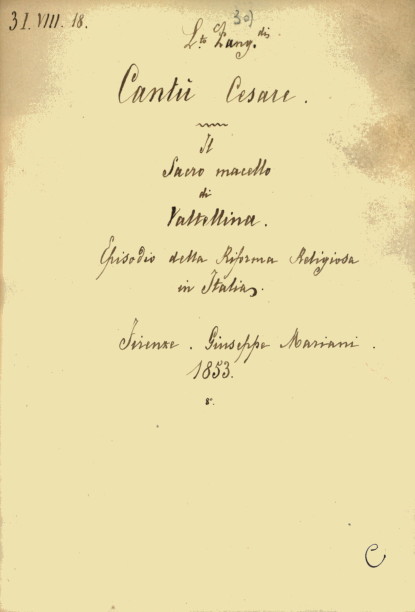 31. VIII. 18.
30)
Cantù Cesare.
Il
Sacro macello
di
Valtellina.
Episodio della Riforma Religiosa
in Italia,
Firenze. Giuseppe Mariani.
1853.
8º.
C